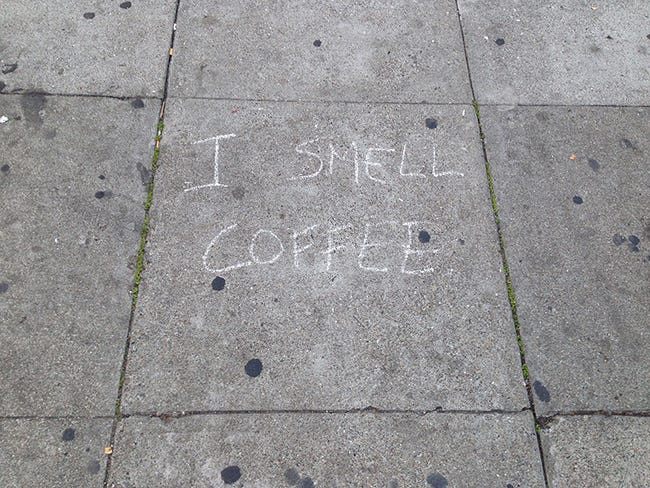 I SMELL
COFFEE